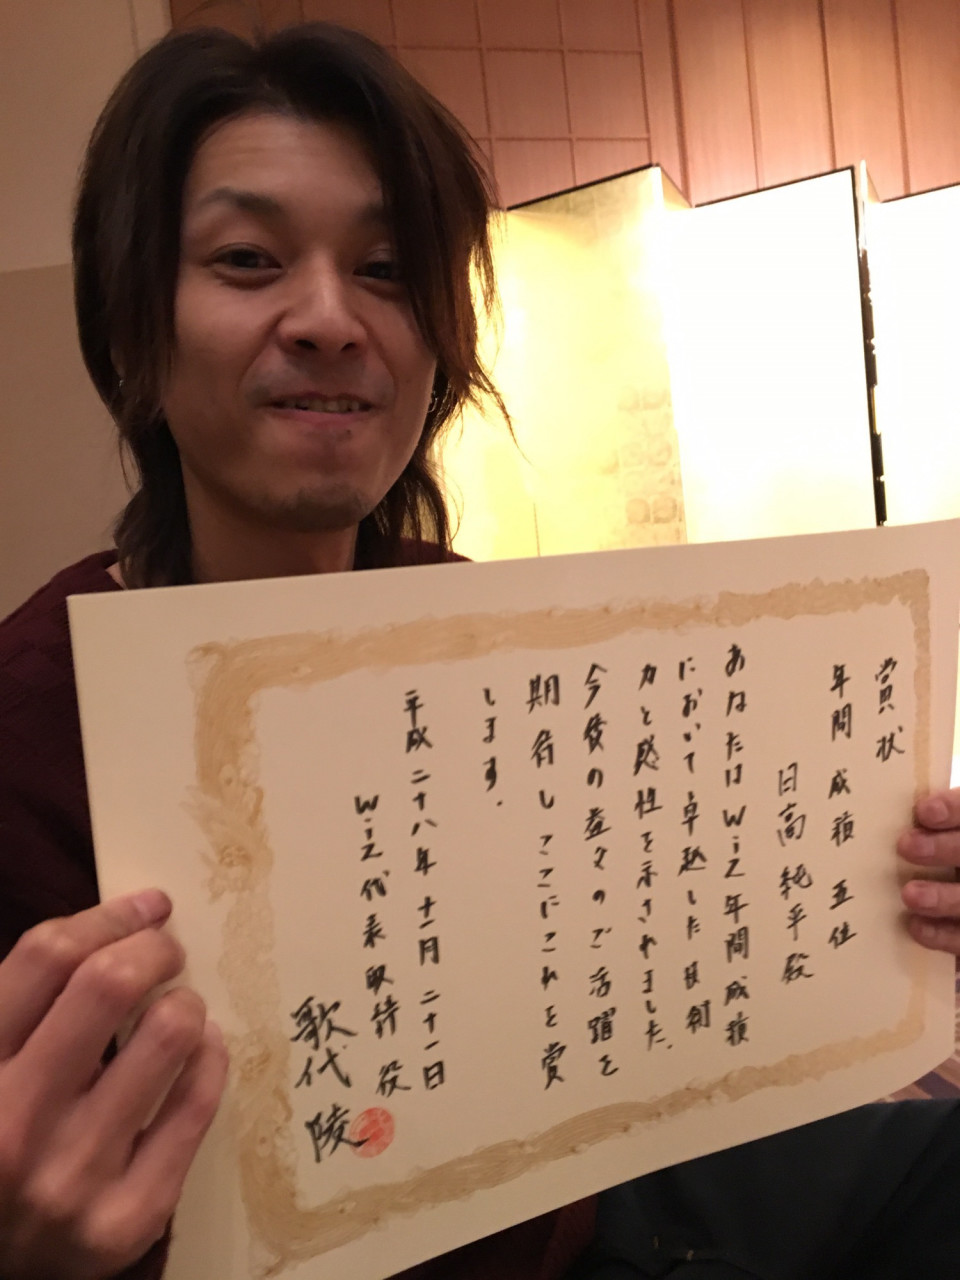 賞状
年間成績五位
日高純平殿
あなたはWiZ年間成績
において卓越した技術
力と感性を示されました。
今後の益々のご活躍を
期待しここにこれを賞
します。
平成二十八年十一月二十一日
WiZ代表取締役
歌代 陵